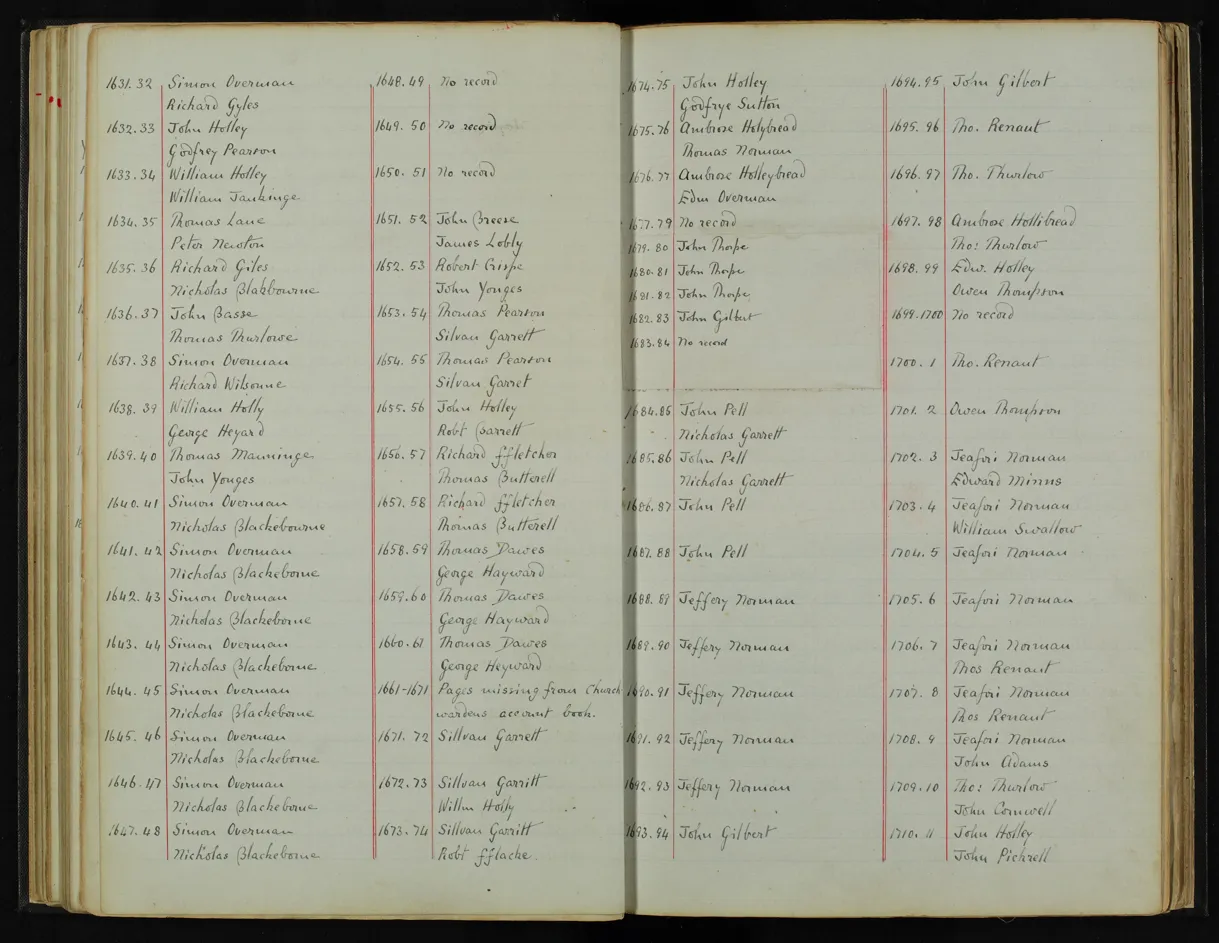 1631.32 Simon Overman
Richard Gyles
1632.33 John Holley
Godfrey Pearson
1633.34 William Holley
William Jankinge
1634.35 Thomas Lane
Peter Newton
1635.36 Richard Giles
Nicholas Blakbourne
1636.37 John Basse
Thomas Thurlowe
1637.38 Simon Overman
Richard Wilsonne
1638.39 William Holly
George Heyard
1639.40 Thomas Manninge
John Yonges
1640.41 Simon Overman
Nicholas Blackebourne
1641.42 Simon Overman
Nicholas Blackeborne
1642.43 Simon Overman
Nicholas Blackeborne
1643.44 Simon Overman
Nicholas Blackeborne
1644.45 Simon Overman
Nicholas Blackeborne
1645.46 Simon Overman
Nicholas Blackeborne
1646.47 Simon Overman
Nicholas Blackeborne
1647.48 Simon Overman
Nicholas Blackeborne
1648.49 No record
1649.50 No record
1650.51 No record
1651.52 John Breese
James Lobly
1652.53 Robert Crispe
John Yonges
1653.54 Thomas Pearson
Silvan Garrett
1654.55 Thomas Pearson
Silvan Garret
1655.56 John Holley
Robt Barrett
1656.57 Richard ffletcher
Thomas Butterell
1657.58 Richard ffletcher
Thomas Butterell
1658.59 Thomas Dawes
George Hayward
1659.60 Thomas Dawes
George Hayward
1660.61 Thomas Dawes
George Heyward
1661-1671 Pages missing from Church
wardens account book.
1671.72 Sillvan Garrett
1672.73 Sillvan Garritt
Willm Holly
1673.74 Sillvan Garritt
Robt fflacke
1674.75 John Holley
Godfrye Sutton
1675.76 Ambrose Holybread
Thomas Norman
1676.77 Ambrose Holleybread
Edm Overman
1677.79 No record
1679.80 John Thorpe
1680.81 John Thorpe
1681.82 John Thorpe
1682.83 John Gilbert
1683.84 No record
1684.85 John Pell
Nicholas Garrett
1685.86 John Pell
Nicholas Garrett
1686.87 John Pell
1687.88 John Pell
1688.89 Jeffery Norman
1689.90 Jeffery Norman
1690.91 Jeffery Norman
1691.92 Jeffery Norman
1692.93 Jeffery Norman
1693.94 John Gilbert
1694.95 John Gilbert
1695.96 Tho. Renaut
1696.97 Tho. Thurlow
1697.98 Ambrose Hollibread
Tho: Thurlow
1698.99 Edw. Holley
Owen Thompson
1699.1700 No record
1700.1 Tho. Renaut
1701.2 Owen Thompson
1702.3 Jeafori Norman
Edward Minns
1703.4 Jeafori Norman
William Swallow
1704.5 Jeafori Norman
1705.6 Jeafori Norman
1706.7 Jeafori Norman
Thos Renaut
1707.8 Jeafori Norman
Thos Renaut
1708.9 Jeafori Norman
John Adams
1709.10 Tho: Thurlow
John Cornwell
1710.11 John Holley
John Pickrell